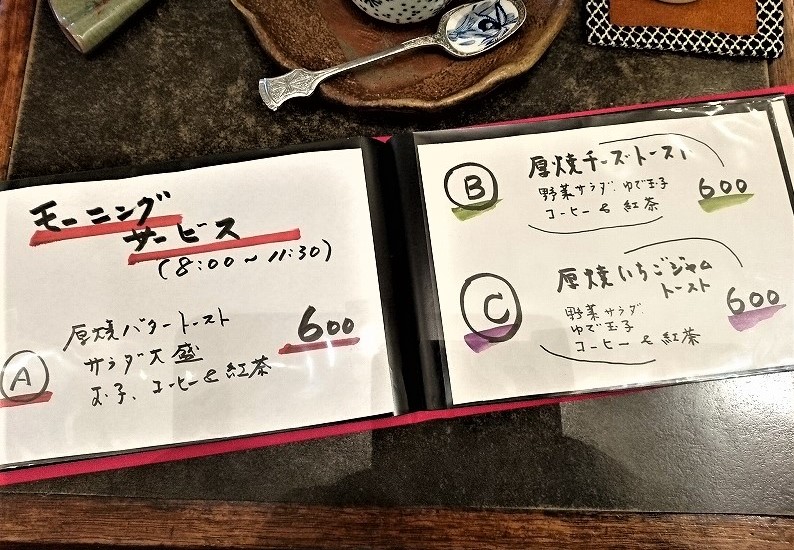 モーニング
サービス
(8:00~11:30)
A
厚焼バタートースト
サラダ大盛
玉子、コーヒー&紅茶
600
B
厚焼チーズトースト
野菜サラダ ゆで玉子
コーヒー&紅茶
600
C
厚焼いちごジャム
トースト
野菜サラダ
ゆで玉子
コーヒー&紅茶
600